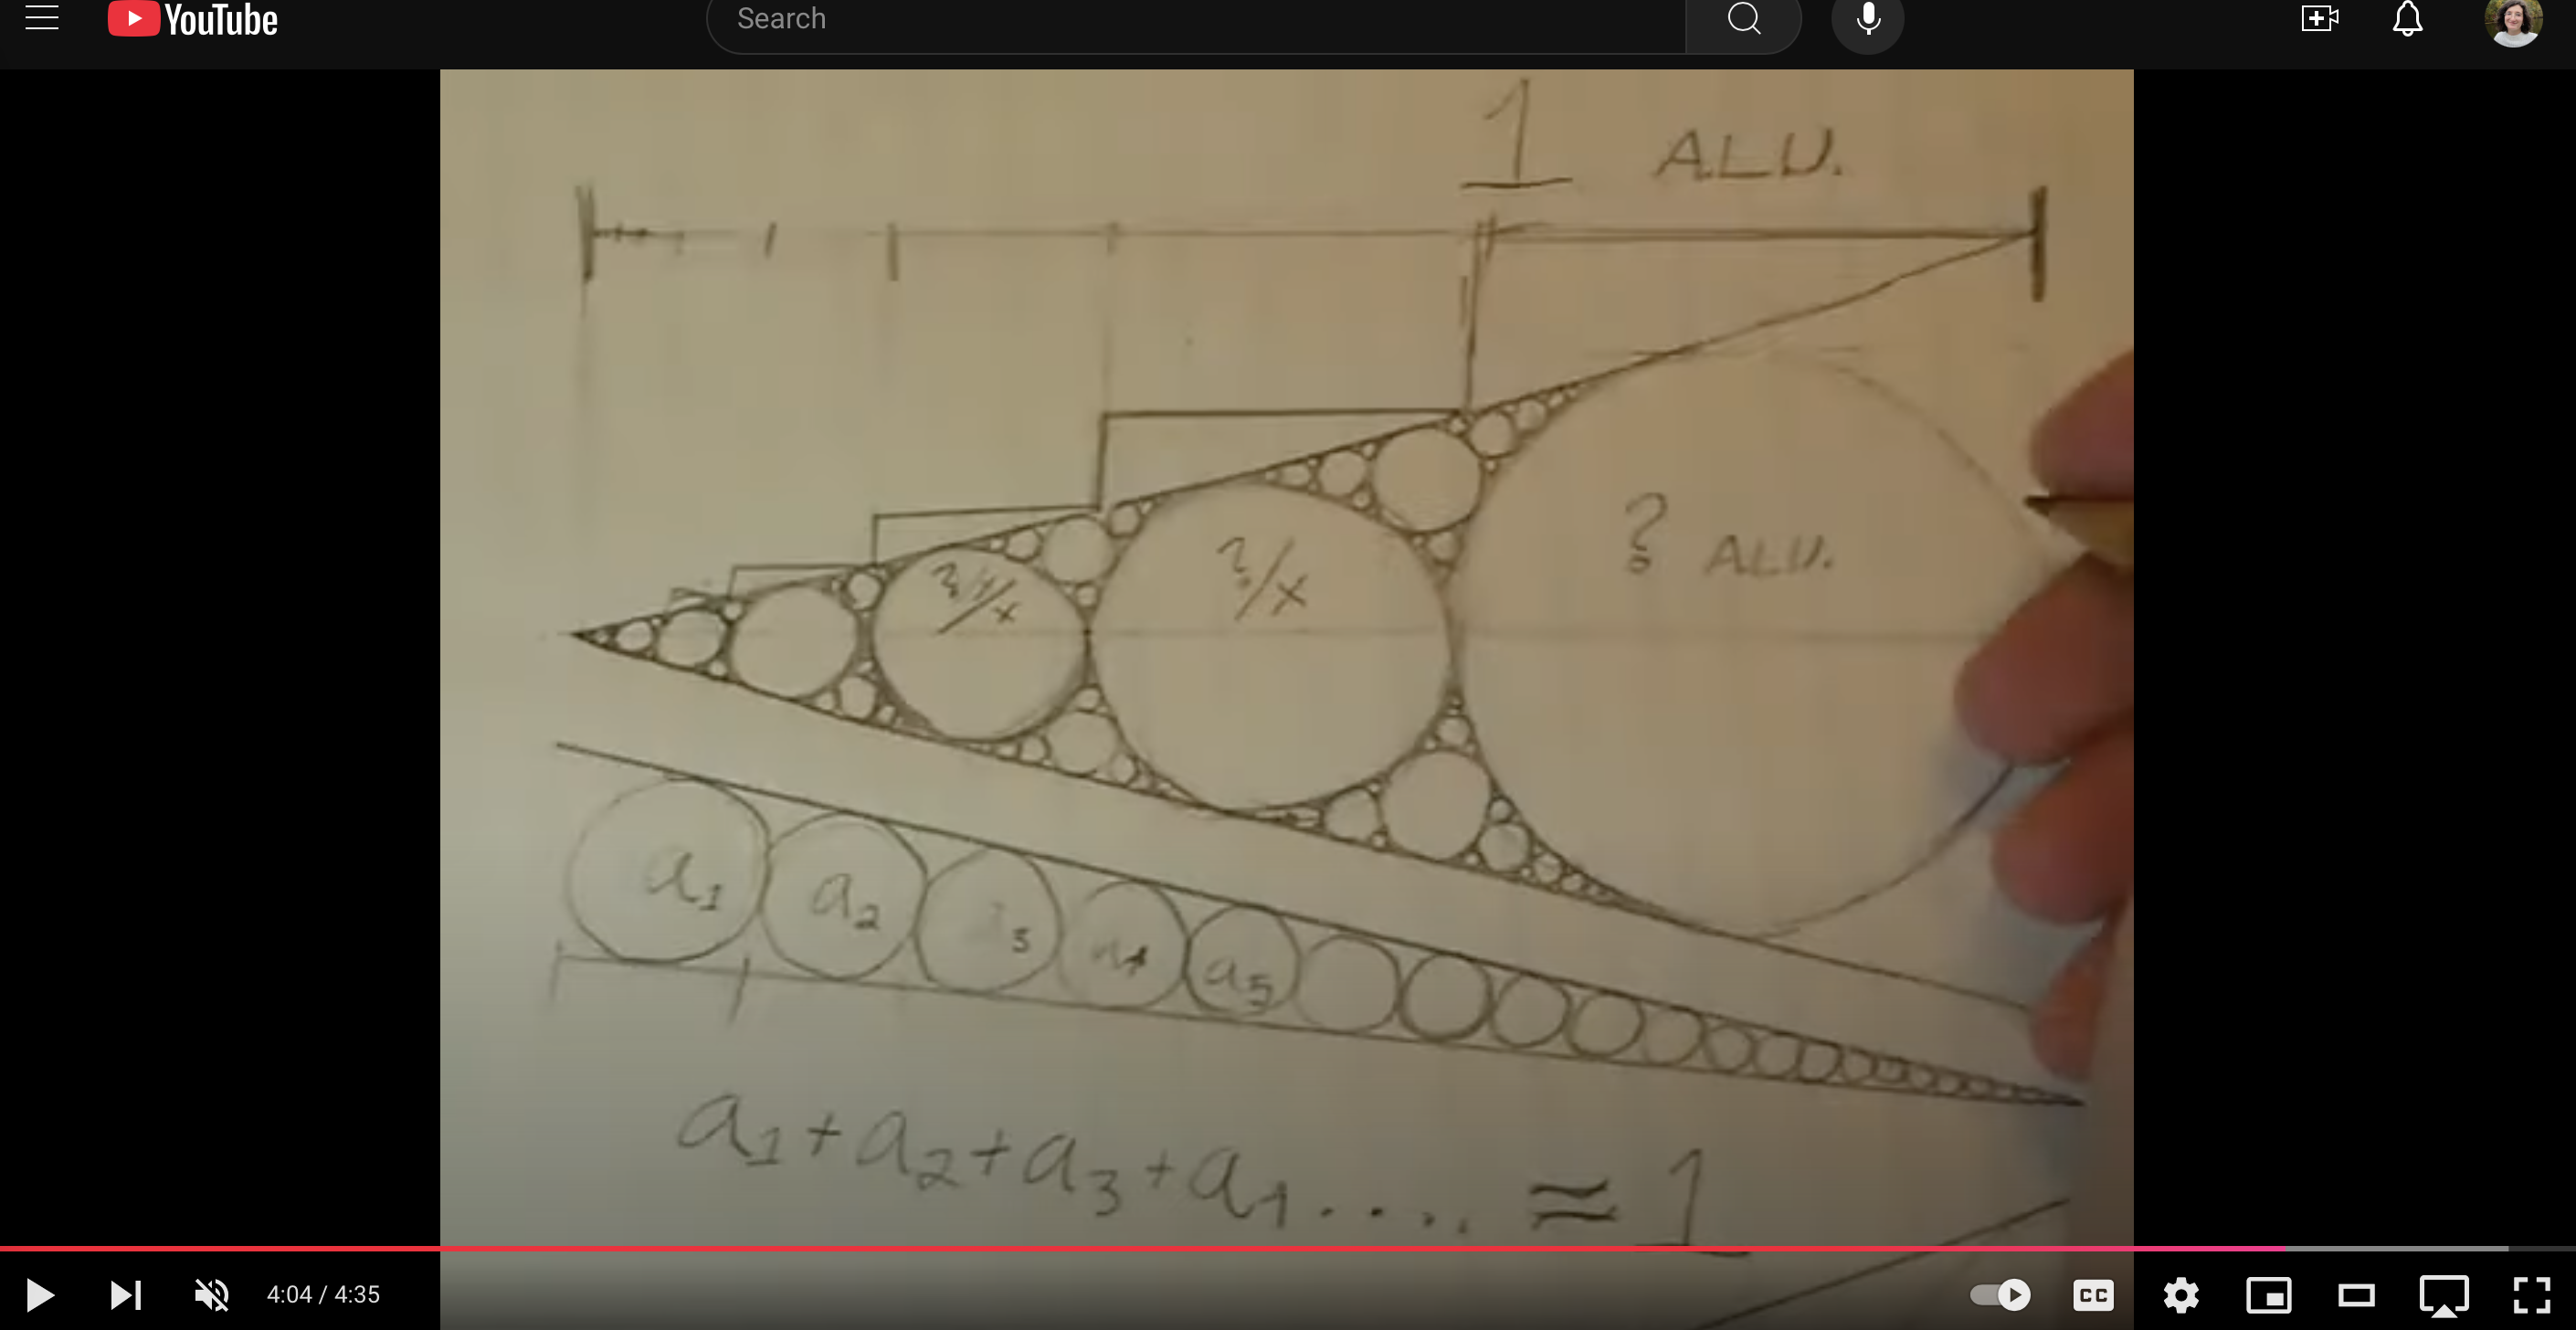 YouTube
Search
1 ALU.
? ALU.
?/x
a1
a2
3
a5
a1+a2+a3+a4.... ≈ 1
4:04 / 4:35
CC